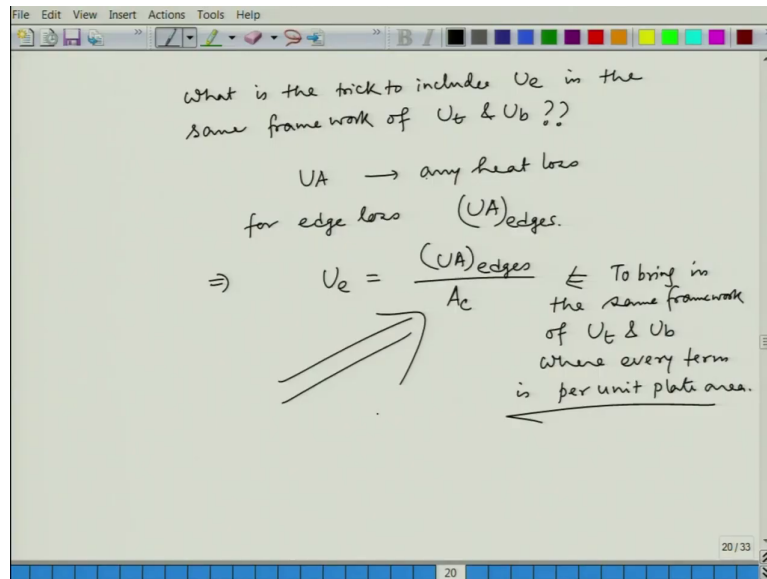 File Edit View Insert Actions Tools Help
What is the trick to includes Ue in the
same framework of Ut & Ub ??
UA → any heat loss
for edge loss (UA)edges.
⇒ Ue = (UA)edges / Ac ⇐ To bring in
the same framework
of Ut & Ub
where every term
is per unit plate area.
20 / 33
20